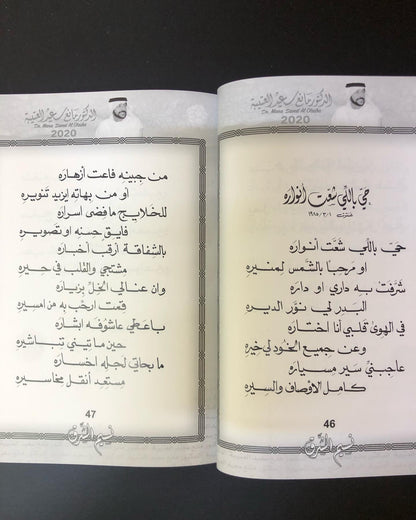 الدكتور مانع سعيد العتيبة
Dr. Mana Saeed Al Otaiba
2020
حيّ باللّي شعّت أنواره
حَيّ باللي شَعَّت أنواره
او مرحبا بالشَّمس لمنيره
شرَّفت به داري او داره
البَدر لي نوَّر الديره
في الهوى قلبي أنا اختاره
وعن جميع الخود لي خيره
عاجبنّي سَير مسياره
كامِل الاوصاف والسيره
46
نسيم الشرق
الدكتور مانع سعيد العتيبة
Dr. Mana Saeed Al Otaiba
2020
من جبينه فاعت أزهاره
او من بهاته يزيد تنويره
للخلايج ما فضى اسراره
فايق حسنه او تصويره
بالشفاقة أرقب أخباره
مشتجي والقلب في حيره
وان عناني الخلّ بزياره
قمت ارحّب به من امسيره
باعطي عاشوفه ابشاره
حين ما تيني تناشيره
ما يحاتي لجله اخساره
مستعد أنقل مخاسيره
47
نسيم الشرق